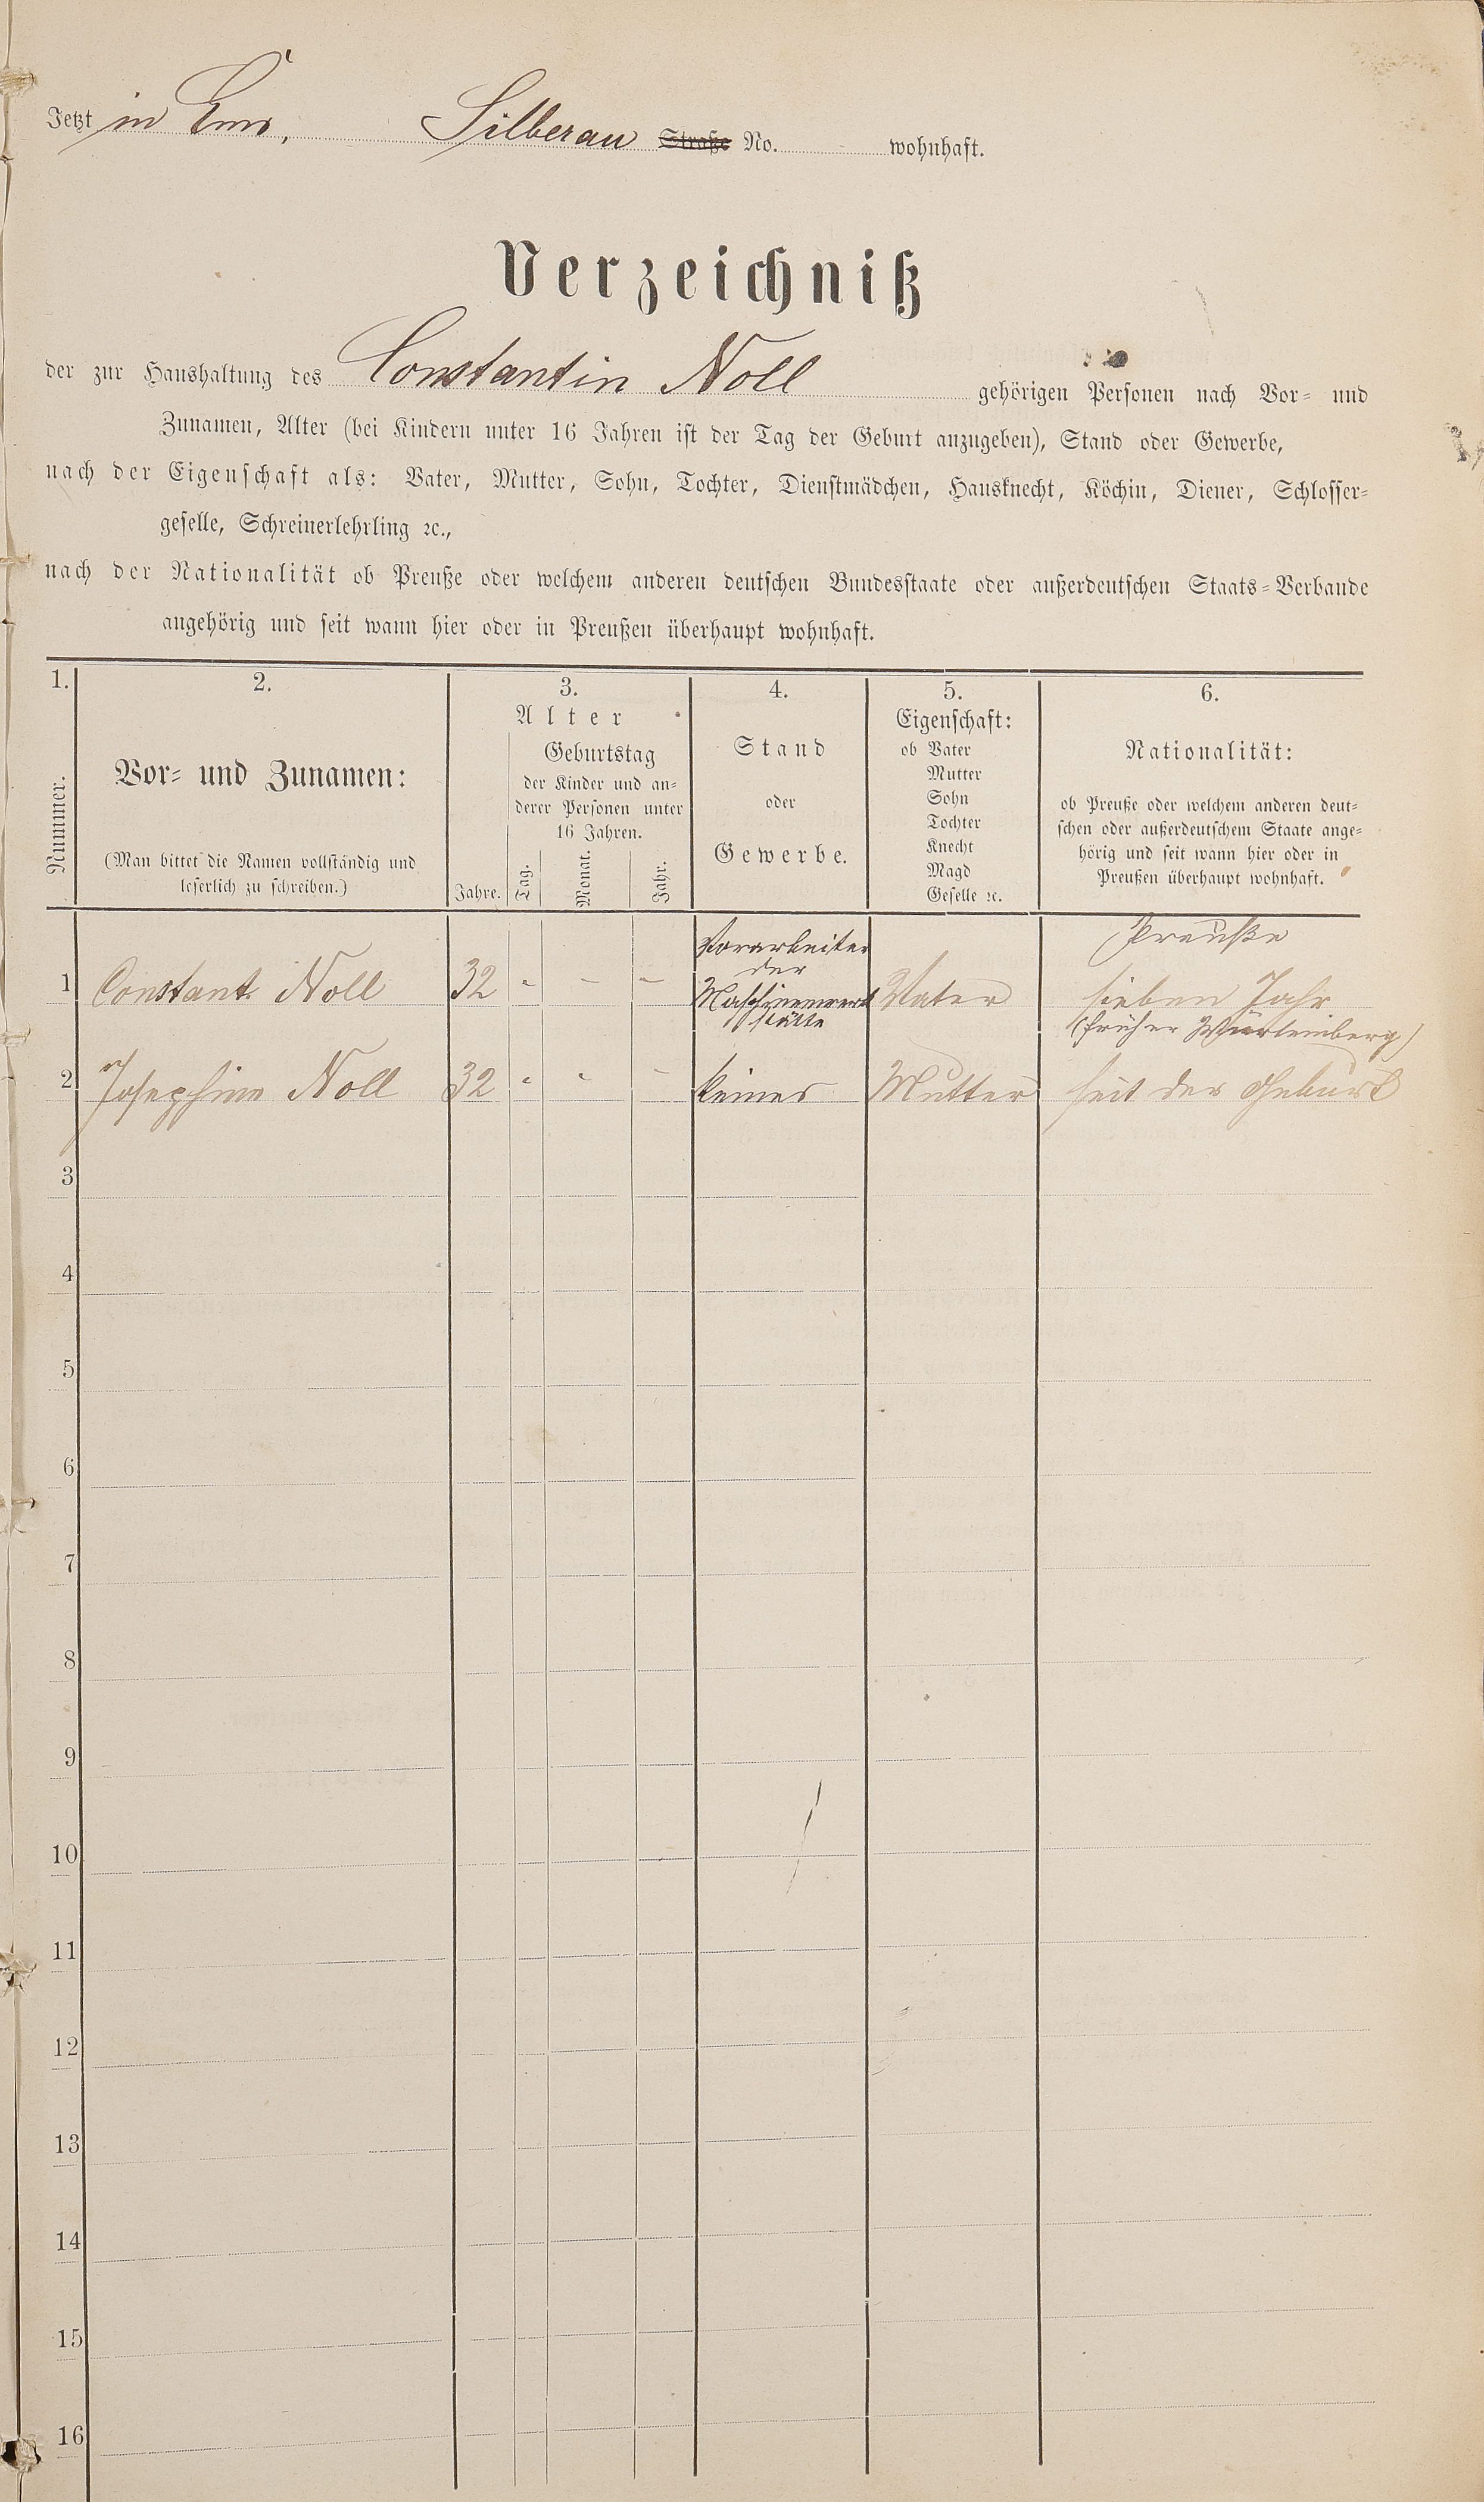 Jetzt in Ems, Silberau Straße No. wohnhaft.
Verzeichniß
der zur Haushaltung des Constantin Noll gehörigen Personen nach Vor- und
Zunamen, Alter (bei Kindern unter 16 Jahren ist der Tag der Geburt anzugeben), Stand oder Gewerbe,
nach der Eigenschaft als: Vater, Mutter, Sohn, Tochter, Dienstmädchen, Hausknecht, Köchin, Diener, Schlosser-
geselle, Schreinerlehrling ꝛc.,
nach der Nationalität ob Preuße oder welchem anderen deutschen Bundesstaate oder außerdeutschen Staats-Verbande
angehörig und seit wann hier oder in Preußen überhaupt wohnhaft.
1.
Nummer.
2.
Vor- und Zunamen:
(Man bittet die Namen vollständig und
leserlich zu schreiben.)
3.
Alter
Jahre.
Geburtstag
der Kinder und an-
derer Personen unter
16 Jahren.
Tag. Monat. Jahr.
4.
Stand
oder
Gewerbe.
5.
Eigenschaft:
ob Vater
Mutter
Sohn
Tochter
Knecht
Magd
Geselle ꝛc.
6.
Nationalität:
ob Preuße oder welchem anderen deut-
schen oder außerdeutschem Staate ange-
hörig und seit wann hier oder in
Preußen überhaupt wohnhaft.
1 Constant. Noll 32 - - -
Vorarbeiter
der
Maschinenwerk
stätte
Vater
Preuße
sieben Jahr
(früher Würtemberg)
2 Josephine Noll 32 - - - keines Mutter seit der Geburt
3
4
5
6
7
8
9
10
11
12
13
14
15
16